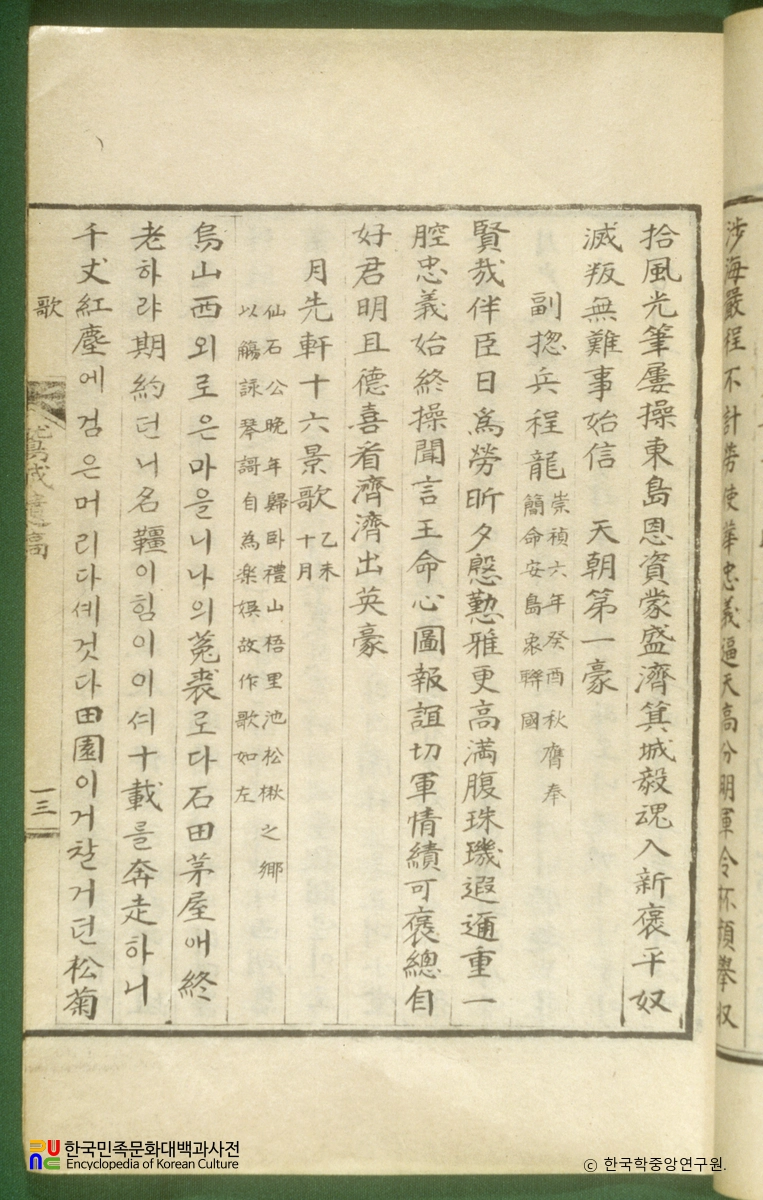 涉海嚴程不計勞使華忠義逼天高分明軍令杯頻擧収
拾風光筆屢操東島恩資蒙盛濟箕城毅魂入新褒平奴
滅叛無難事始信 天朝第一豪
副摠兵程龍 崇禎六年癸酉秋膺奉
簡命安島衆聯國
賢哉伴臣日爲勞昕夕慇懃雅更高滿腹珠璣遐邇重一
腔忠義始終操聞言王命心圖報誼切軍情績可褒總自
好君明且德喜看濟濟出英豪
月先軒十六景歌 乙未
十月
仙石公晩年歸臥禮山梧里池松楸之鄉
以觴詠琴謌自為楽娯故作歌如左
烏山西외로은마을니나의菟裘로다石田茅屋애終
老하랴期約던니名韁이힘이이셔十載를奔走하니
千丈紅塵에검은머리다셰것다田園이거찰거던松菊
歌
遺高
一三
한국민족문화대백과사전
Encyclopedia of Korean Culture
ⓒ 한국학중앙연구원.